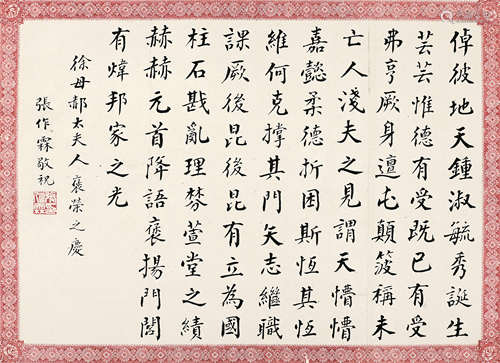 倬彼地天鍾淑毓秀誕生
芸芸惟德有受既已有受
弗亨厥身邅屯顛稱未
亡人淺夫之見謂天懵懵
嘉懿柔德折困斯恆其恆
維何克撐其門矢志繼職
課厥後昆後昆有立為國
柱石戡亂理棼萱堂之績
赫赫元首降語褒揚門閭
有煒邦家之光
徐母郝太夫人褒榮之慶
張作霖敬祝